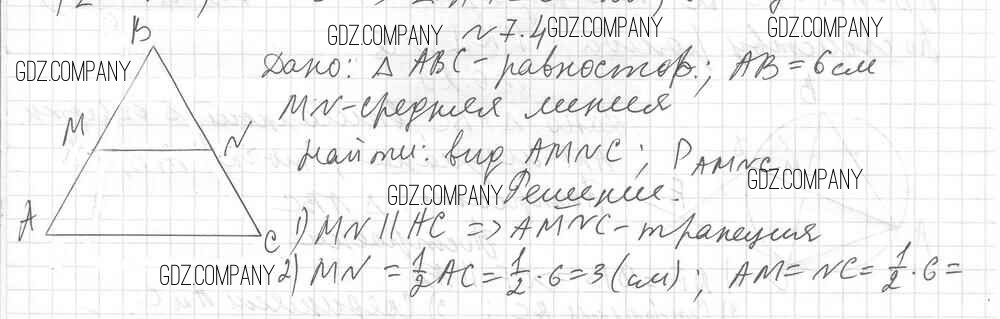 №7.4
Дано: △ ABC - равностор.; AB = 6 см
MN - средняя линия
Найти: вид AMNC; P_AMNC
Решение.
1) MN || AC => AMNC - трапеция
2) MN = 1/2 AC = 1/2 · 6 = 3 (см); AM = NC = 1/2 · 6 =
B
M
N
A
C
GDZ.COMPANY
GDZ.COMPANY
GDZ.COMPANY
GDZ.COMPANY
GDZ.COMPANY
GDZ.COMPANY
GDZ.COMPANY